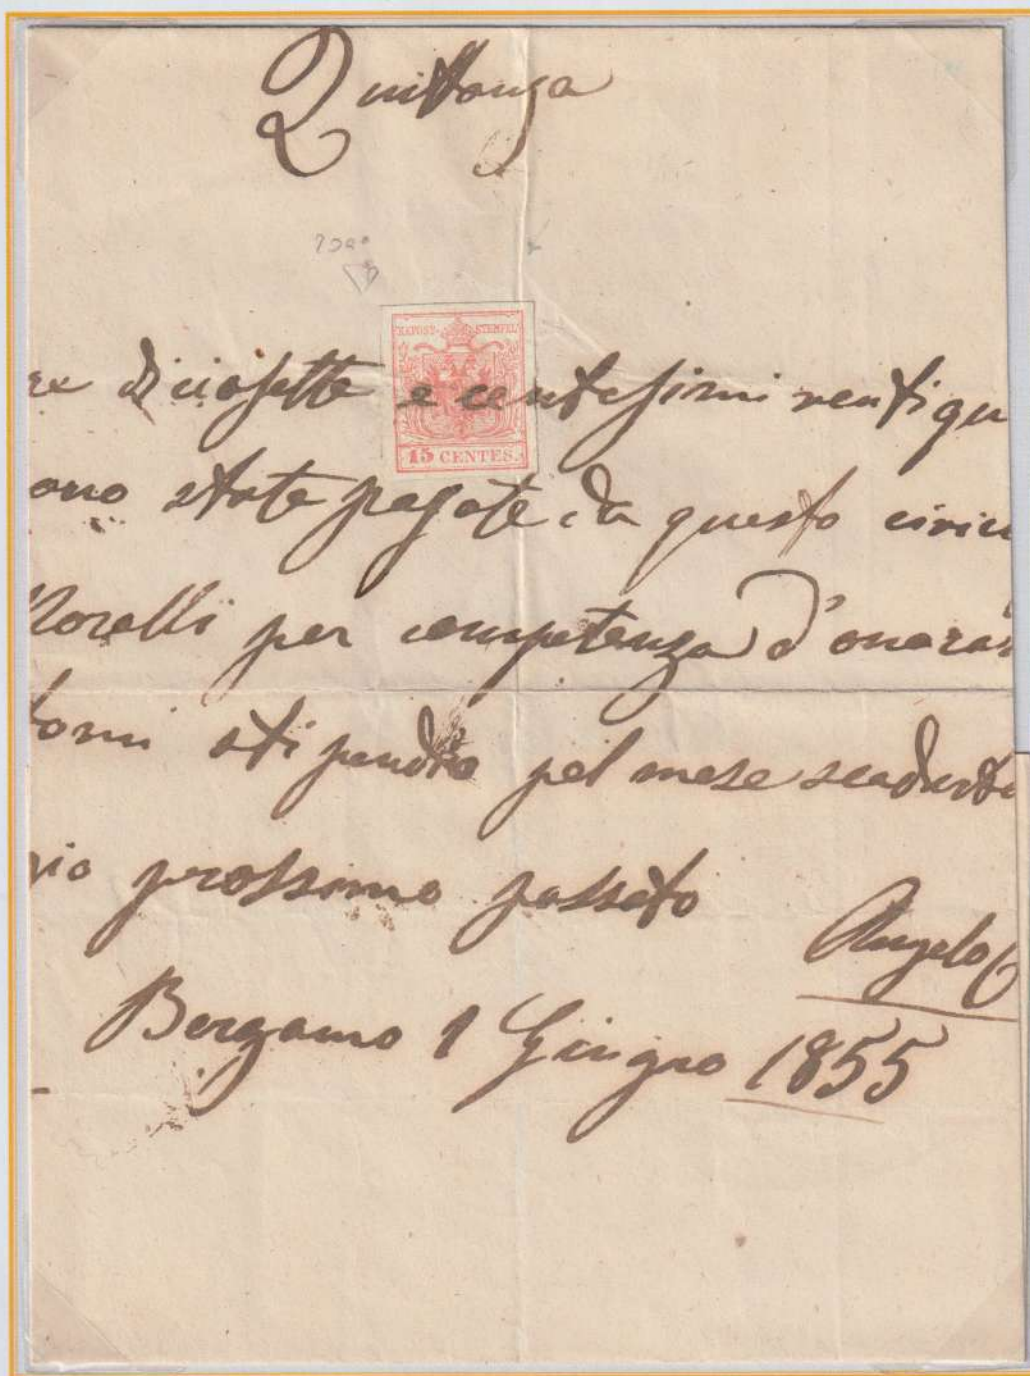 Quittanza
KKPOST- STEMPEL
re diciasette e centesimi ventiqu
15 CENTES.
ono state pagate da questo civico
Morelli per competenza d'onorar
tomi stipendio pel mese scaduto
gio prossimo passato
Angelo C
Bergamo 1 Giugno 1855